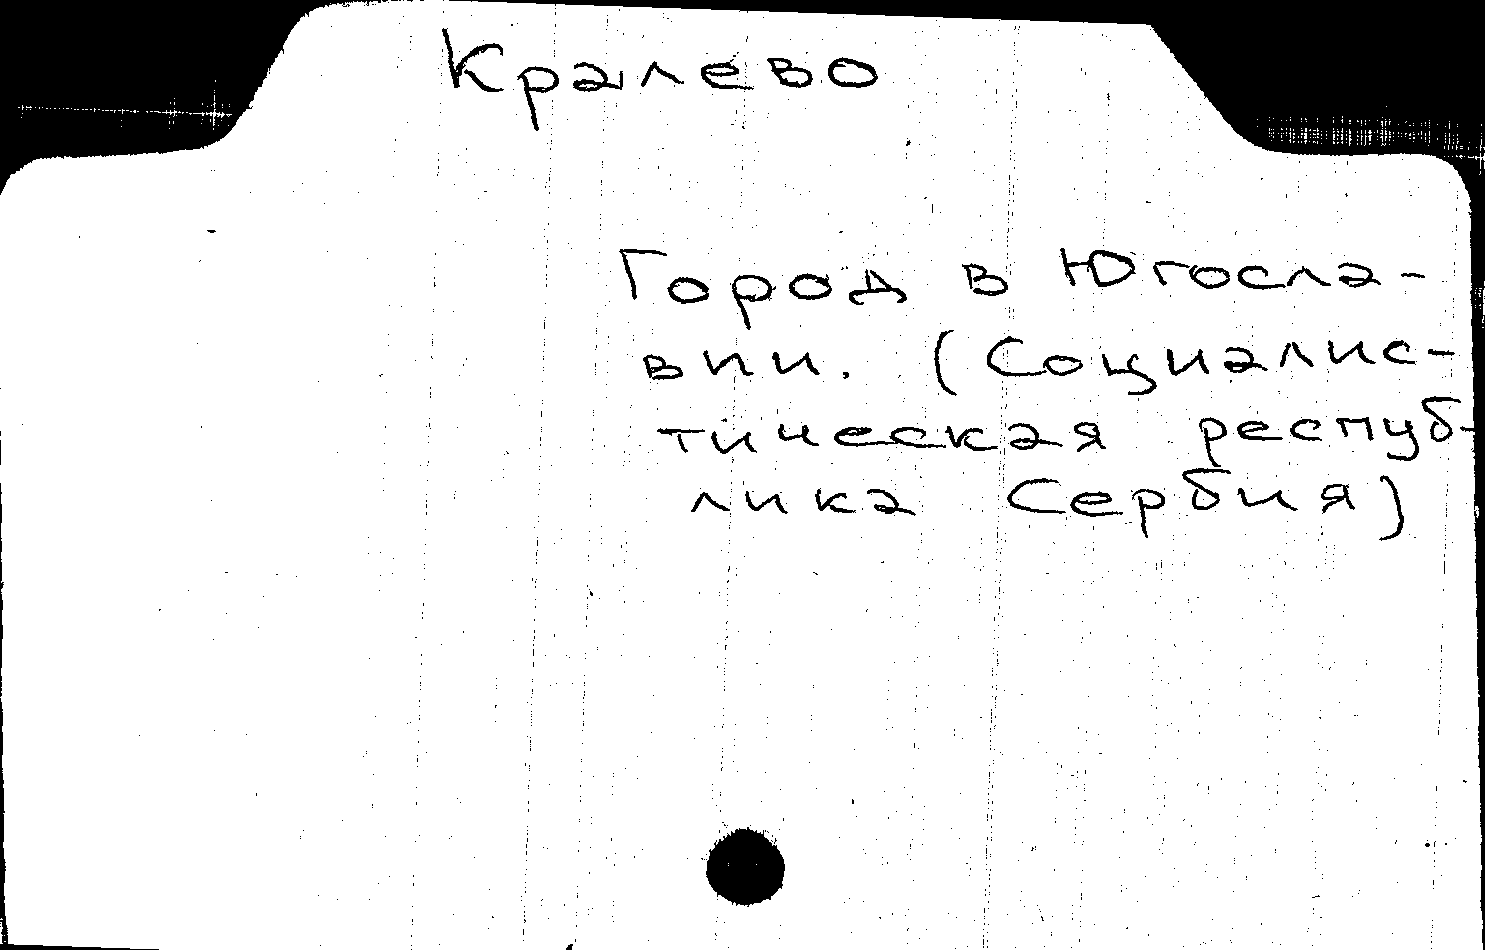 Кралево
Город в Югосла-
вии. (Социалис-
тическая респуб-
лика Сербия)